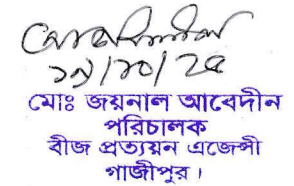 ১৯/১০/২৫
মোঃ জয়নাল আবেদীন
পরিচালক
বীজ প্রত্যয়ন এজেন্সী
গাজীপুর।